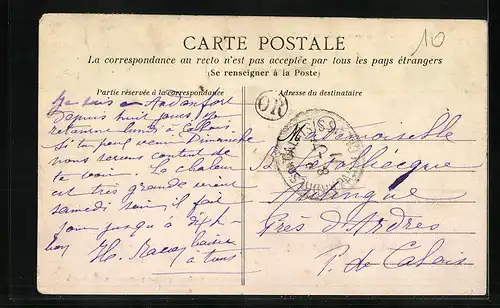 10
CARTE POSTALE
La correspondance au recto n'est pas acceptée par tous les pays étrangers
(Se renseigner à la Poste)
Partie réservée à la correspondance
Adresse du destinataire
Je suis
depuis huit jours, je
retourne lundi à Calais.
Si tu peux venir Dimanche
nous serons content de
te voir. La chaleur
est très grande
samedi soir, il fait
jour jusqu'à
H.
à tous
OR
Mademoiselle
Autingue
Près d'Ardres
P. de Calais